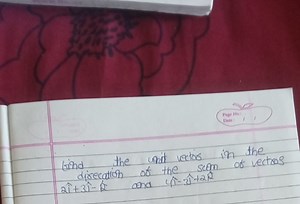 Page No.:
Date: / /
Find the unit vector in the
direction of the sum of vectors
2î+3ĵ-k̂ and 4î-3ĵ+2k̂